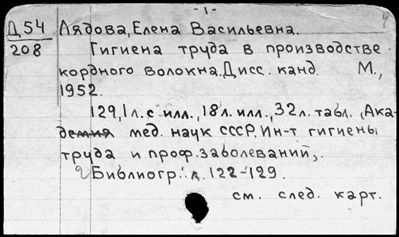 - 1 -
Д 54 Лядова, Елена Васильевна.
208 Гигиена труда в производстве
кордного волокна. Дисс. канд. М.,
1952.
129,1л. с илл., 18л. илл., 32л. табл. (Ака-
демия мед. наук СССР. Ин-т гигиены
труда и проф. заболеваний).
Библиогр.: л. 122-129.
см. след. карт.